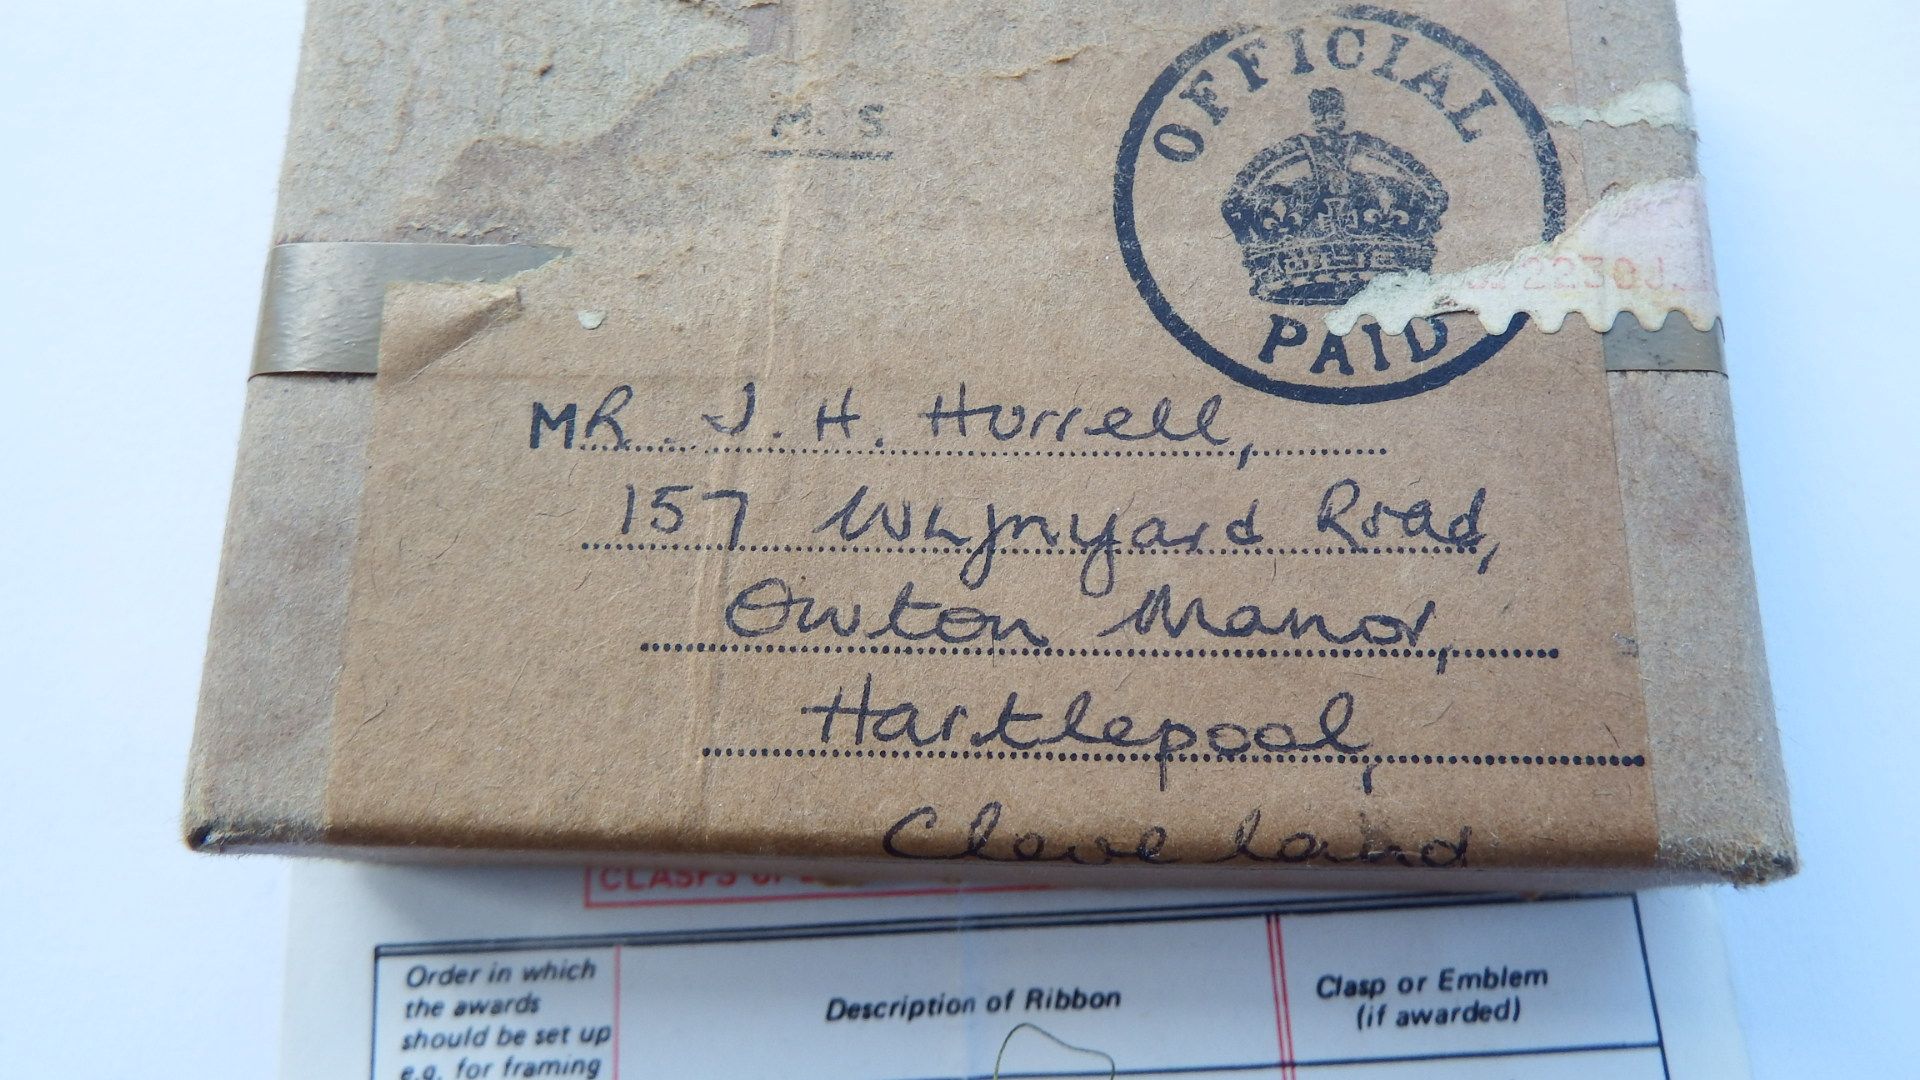 OFFICIAL
M. S
2230J.
PAID
MR. J. H. Hurrell,
157 Wynyard Road,
Owton Manor,
Hartlepool,
Cleveland
CLASPS
Order in which
the awards
should be set up
e.g. for framing
Description of Ribbon
Clasp or Emblem
(if awarded)